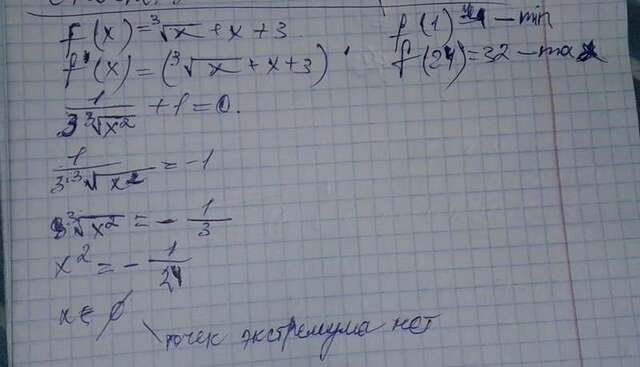 f(x) = ∛x + x + 3
f'(x) = (∛x + x + 3)'
1/(3∛x²) + 1 = 0.
1/(3·∛x²) = -1
∛x² = - 1/3
x² = - 1/27
x ∈ ∅
точек экстремума нет
f(1) - min
f(27) = 32 - max